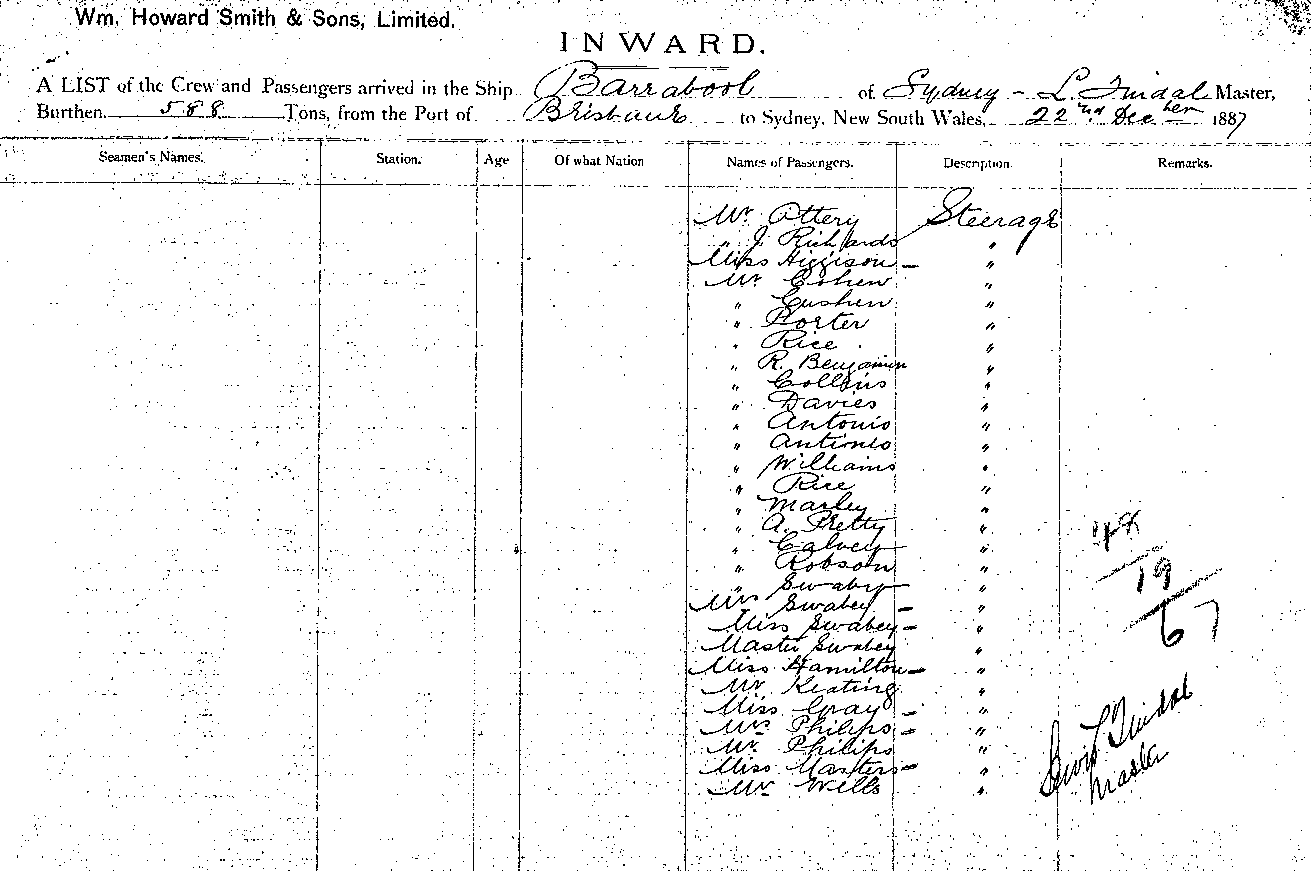 Wm. Howard Smith & Sons, Limited.
INWARD.
A LIST of the Crew and Passengers arrived in the Ship Barrabool of Sydney - L. Tindal Master,
Burthen 588 Tons, from the Port of Brisbane to Sydney, New South Wales, 22nd Decber 1887
Seamen's Names. Station. Age Of what Nation Names of Passengers. Description. Remarks.
Mr Attery Steerage
" J. Richards "
Miss Higgison - "
Mr Cohen "
" Cushen "
" Porter "
" Rice "
" R. Benjamin "
" Collins "
" Davies "
" Antonio "
" Antonio "
" Williams "
" Rice "
" Marley "
" A. Pretty "
" Calvey "
" Robson "
" Swabey "
Mrs Swabey - "
Miss Swabey - "
Master Swabey "
Miss Hamilton - "
Mr Keating "
Miss Gray - "
Mrs Philips - "
Mr Philips "
Miss Masters - "
Mr Wells "
48
19
67
Lewis L Tindal
Master